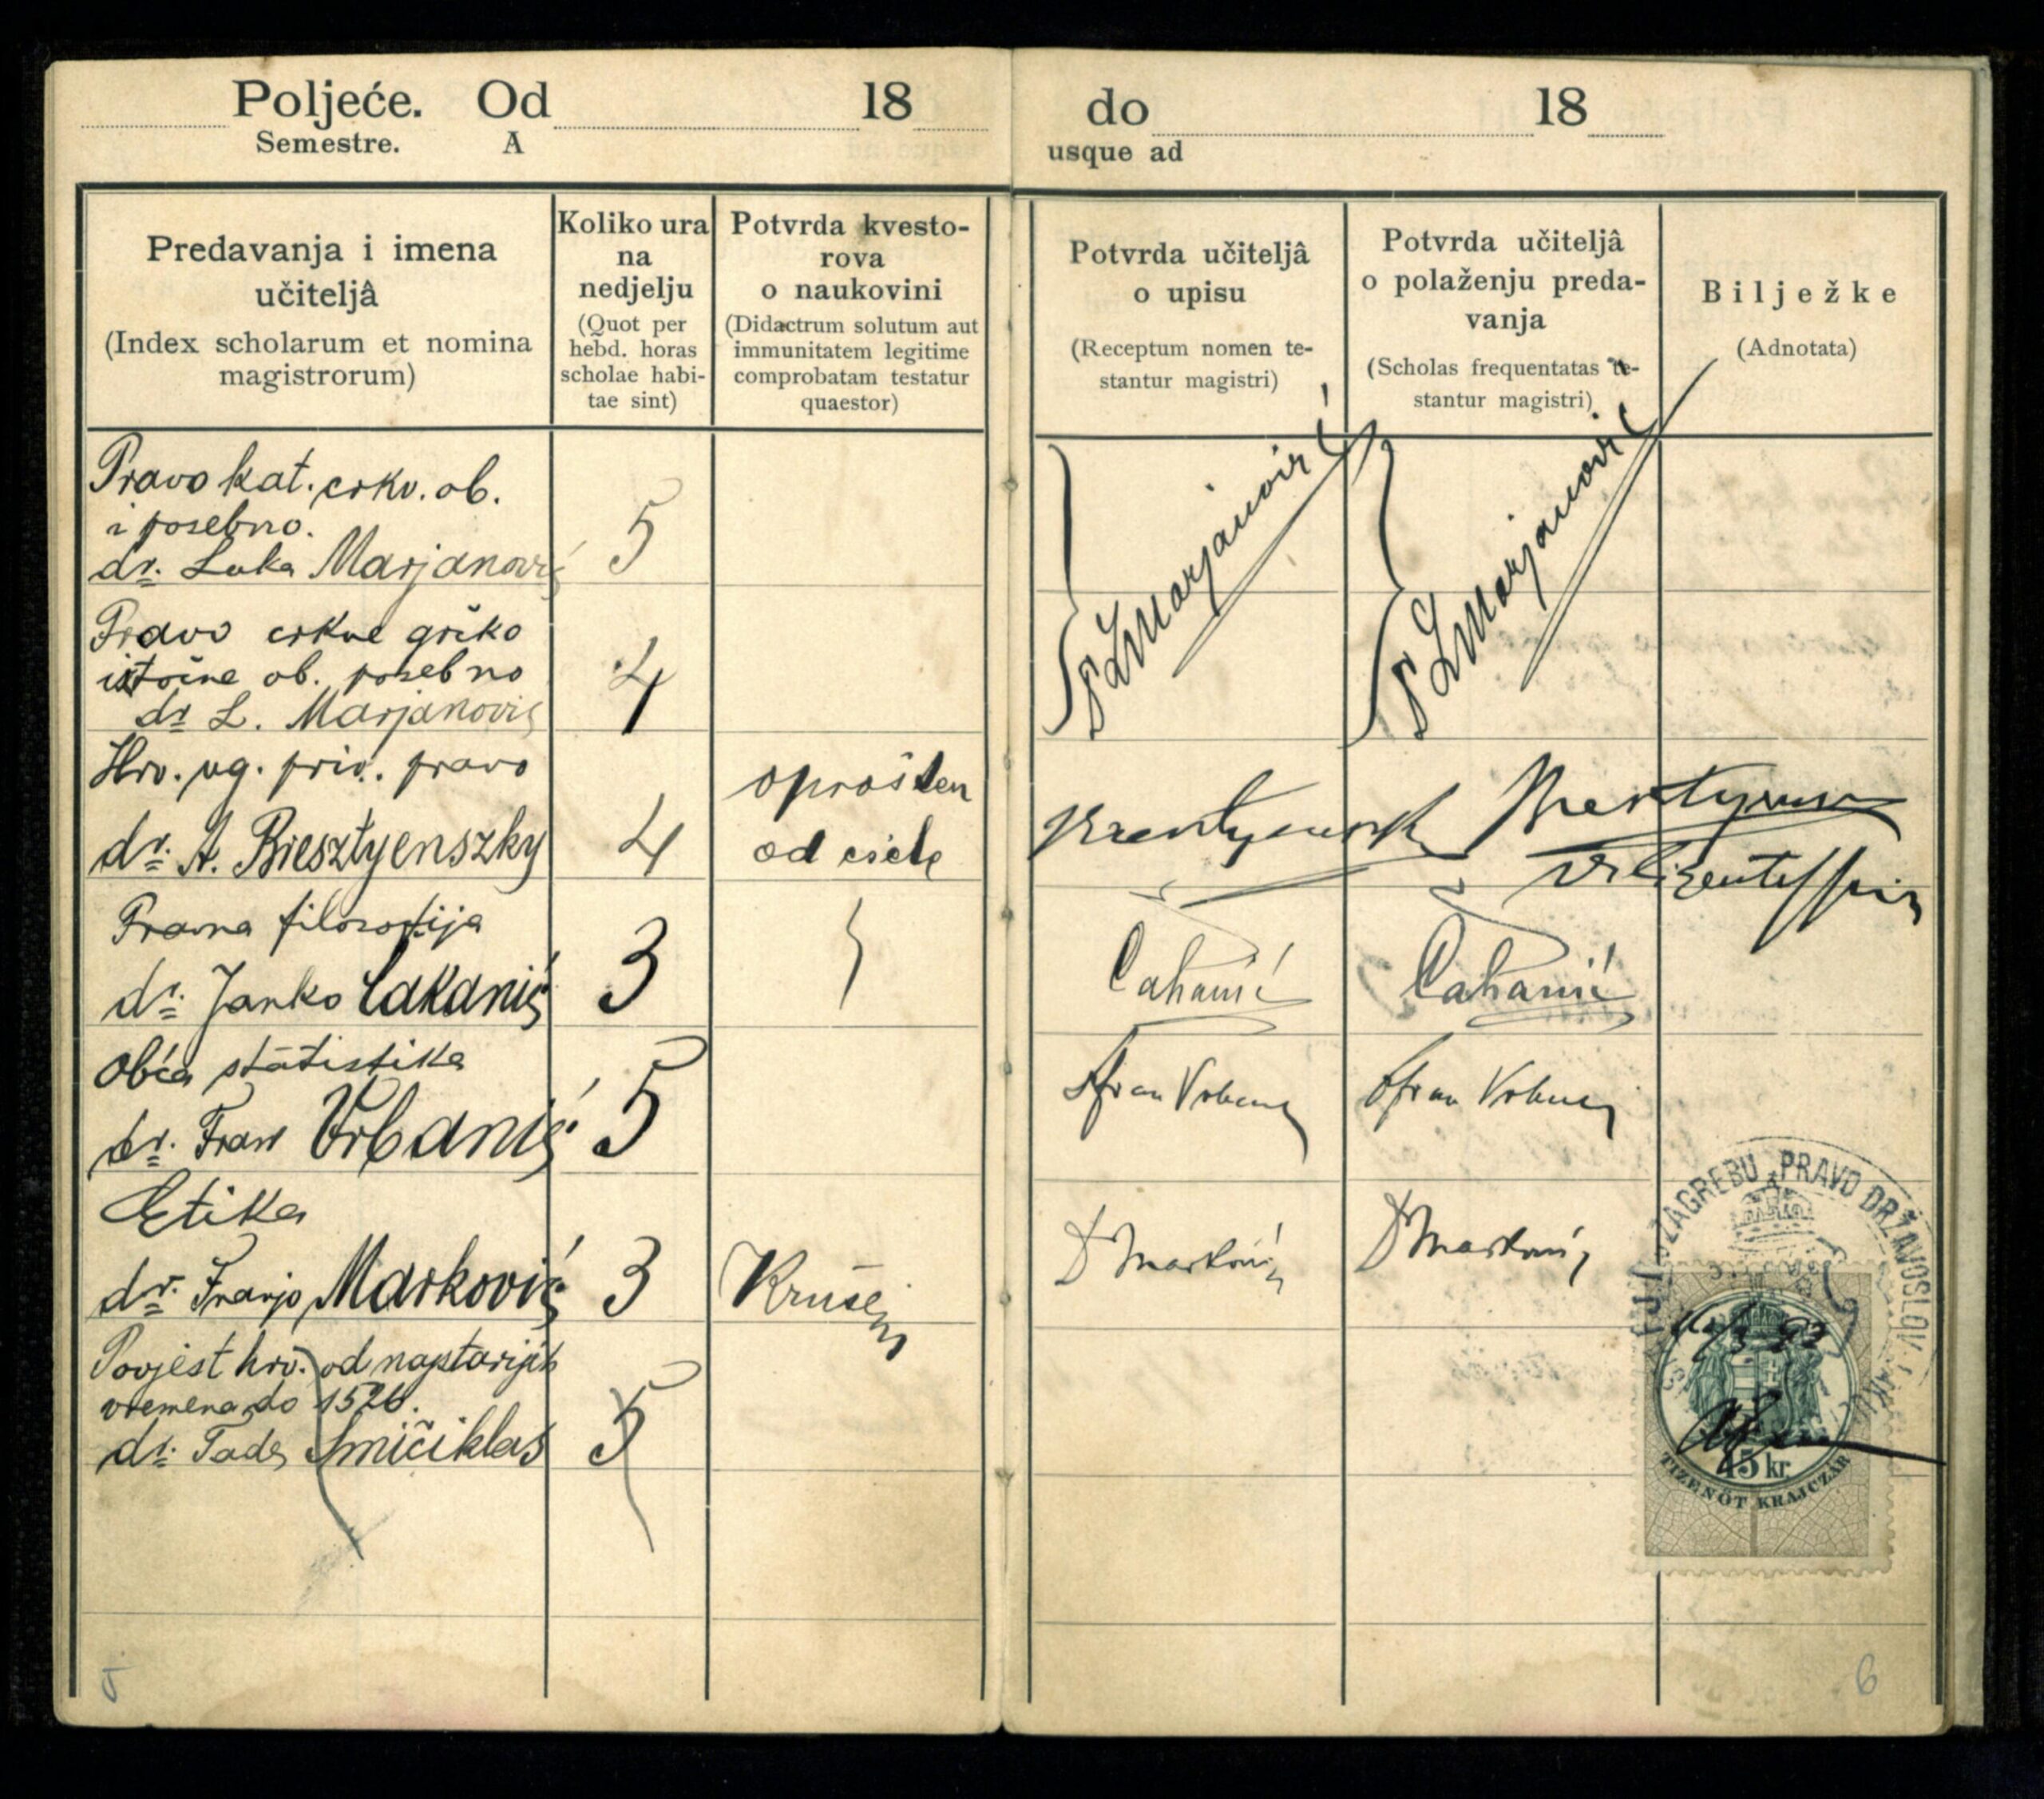 Poljeće. Od 18
Semestre. A
do 18
usque ad
Predavanja i imena
učiteljâ
(Index scholarum et nomina
magistrorum)
Koliko ura
na
nedjelju
(Quot per
hebd. horas
scholae habi-
tae sint)
Potvrda kvesto-
rova
o naukovini
(Didactrum solutum aut
immunitatem legitime
comprobatam testatur
quaestor)
Potvrda učiteljâ
o upisu
(Receptum nomen te-
stantur magistri)
Potvrda učiteljâ
o polaženju preda-
vanja
(Scholas frequentatas te-
stantur magistri)
Bilježke
(Adnotata)
Pravo kat. crkv. ob.
i posebno.
dr. Luka Marjanović
5
Marjanović
Marjanović
Pravo crkve grčko
istočne ob. posebno
dr L. Marjanović
4
Hrv. ug. priv. pravo
dr. A. Bresztyenszky
4
oprošten
od ciele
Pravna filozofija
dr. Janko Čakanić
3
Čakanić
Čakanić
Obća statistika
dr. Fran Vrbanić
5
Fran Vrbanić
Fran Vrbanić
Etika
dr. Franjo Marković
3
D Marković
D Marković
Povjest hrv. od najstarijih
vremena do 1526.
dr. Tade Smičiklas
5
ZAGREBU PRAVO DRŽAVOSLOV.
15 kr.
TIZENÖT KRAJCZÁR
5
6